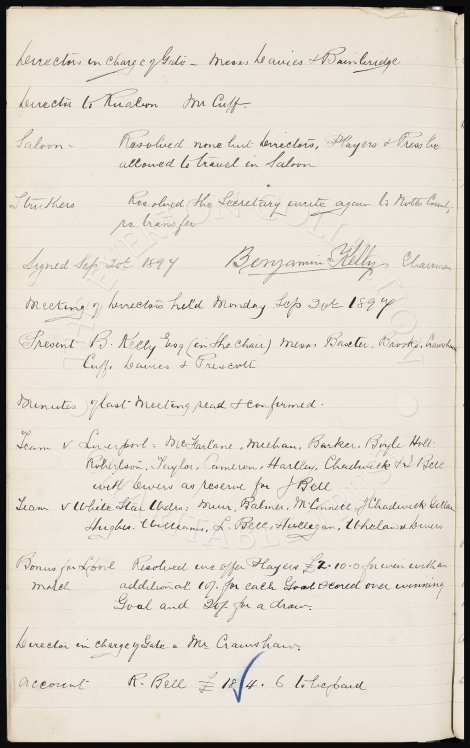 Directors in charge of Gate - Messrs Davies & Bainbridge
Director to Ruabon Mr Cuff.
Saloon - Resolved none but Directors, Players & Press be
allowed to travel in Saloon
Strikers Resolved the Secretary write again to Notts County
re transfer
Signed Sep 20th 1897 Benjamin Kelly Chairman
Meeting of Directors held Monday Sep 20th 1897
Present B. Kelly Esq (in the chair) Messrs Baxter, Brooks, Crawshaw
Cuff, Davies & Prescott
Minutes of last Meeting read & confirmed.
Team v Liverpool = McFarlane, Meehan, Barker, Boyle Holt
Robertson, Taylor, Cameron, Hartley, Chadwick & J Bell
with Divers as reserve for J Bell
Team v White Star Wdrs: Muir, Balmer, McConnell, J Chadwick
Hughes, Williams, L. Bell, Hulligan, Whelan & Divers
Bonus for L'pool Resolved we offer Players £2.10.0 for win with an
match additional 10/. for each Goal scored over winning
Goal and 20/- for a draw.
Director in charge of Gate = Mr Crawshaw.
Account R. Bell £18.4.6 to be paid
THE EVERTON COLLECTION
CHARITABLE TRUST